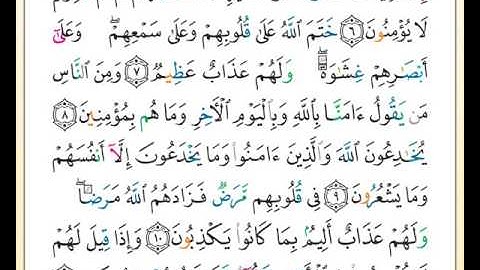 لَا يُؤْمِنُونَ ۝٦ خَتَمَ ٱللَّهُ عَلَىٰ قُلُوبِهِمْ وَعَلَىٰ سَمْعِهِمْ ۖ وَعَلَىٰٓ
أَبْصَـٰرِهِمْ غِشَـٰوَةٌ ۖ وَلَهُمْ عَذَابٌ عَظِيمٌ ۝٧ وَمِنَ ٱلنَّاسِ
مَن يَقُولُ ءَامَنَّا بِٱللَّهِ وَبِٱلْيَوْمِ ٱلْـَٔاخِرِ وَمَا هُم بِمُؤْمِنِينَ ۝٨
يُخَـٰدِعُونَ ٱللَّهَ وَٱلَّذِينَ ءَامَنُوا۟ وَمَا يَخْدَعُونَ إِلَّآ أَنفُسَهُمْ
وَمَا يَشْعُرُونَ ۝٩ فِى قُلُوبِهِم مَّرَضٌ فَزَادَهُمُ ٱللَّهُ مَرَضًا ۖ
وَلَهُمْ عَذَابٌ أَلِيمٌۢ بِمَا كَانُوا۟ يَكْذِبُونَ ۝١٠ وَإِذَا قِيلَ لَهُمْ